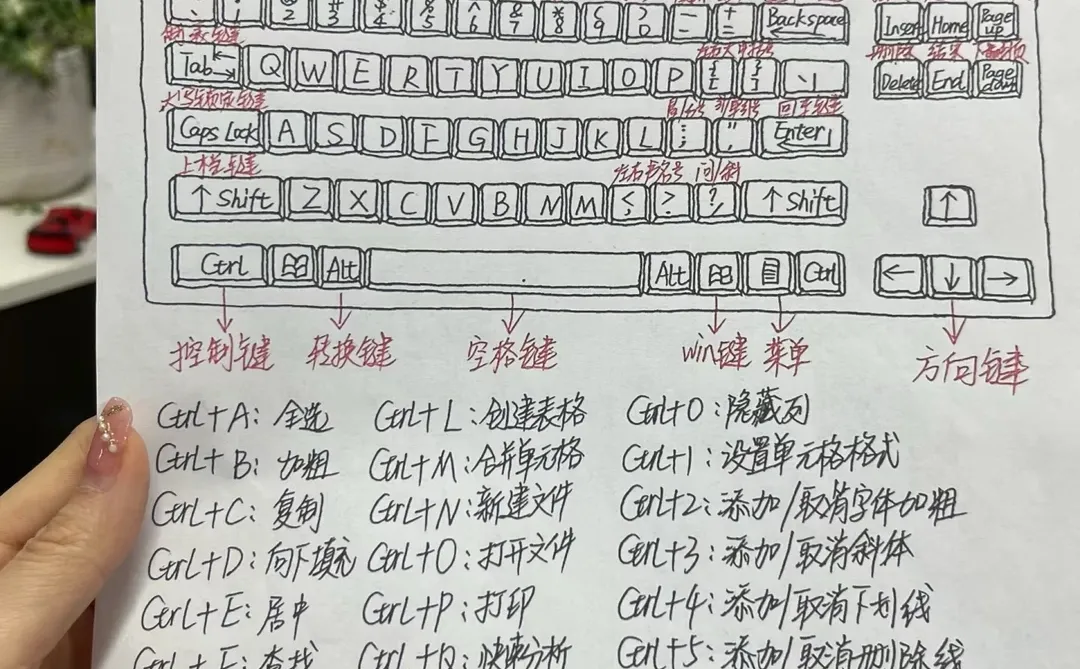 @ 2 # 3 $ 4 % 5 ^ 6 & 7 * 8 ( 9 ) 0 — - + = Backspace Insert Home Page up
制表键 左右大中括号 删除 结束 下翻页
Tab Q W E R T Y U I O P { [ } ] \ | Delete End Page down
大写锁定键 冒/分号 引号 回车键
Caps Lock A S D F G H J K L : ; " ' Enter
上档键 左右书名号 问/斜
↑ Shift Z X C V B N M < , > . ? / ↑ Shift ↑
Ctrl Alt Alt Ctrl ← ↓ →
控制键 转换键 空格键 win键 菜单 方向键
Ctrl+A: 全选 Ctrl+L: 创建表格 Ctrl+0: 隐藏列
Ctrl+B: 加粗 Ctrl+M: 合并单元格 Ctrl+1: 设置单元格格式
Ctrl+C: 复制 Ctrl+N: 新建文件 Ctrl+2: 添加/取消字体加粗
Ctrl+D: 向下填充 Ctrl+O: 打开文件 Ctrl+3: 添加/取消斜体
Ctrl+E: 居中 Ctrl+P: 打印 Ctrl+4: 添加/取消下划线
Ctrl+F: 查找 Ctrl+Q: 快速分析 Ctrl+5: 添加/取消删除线